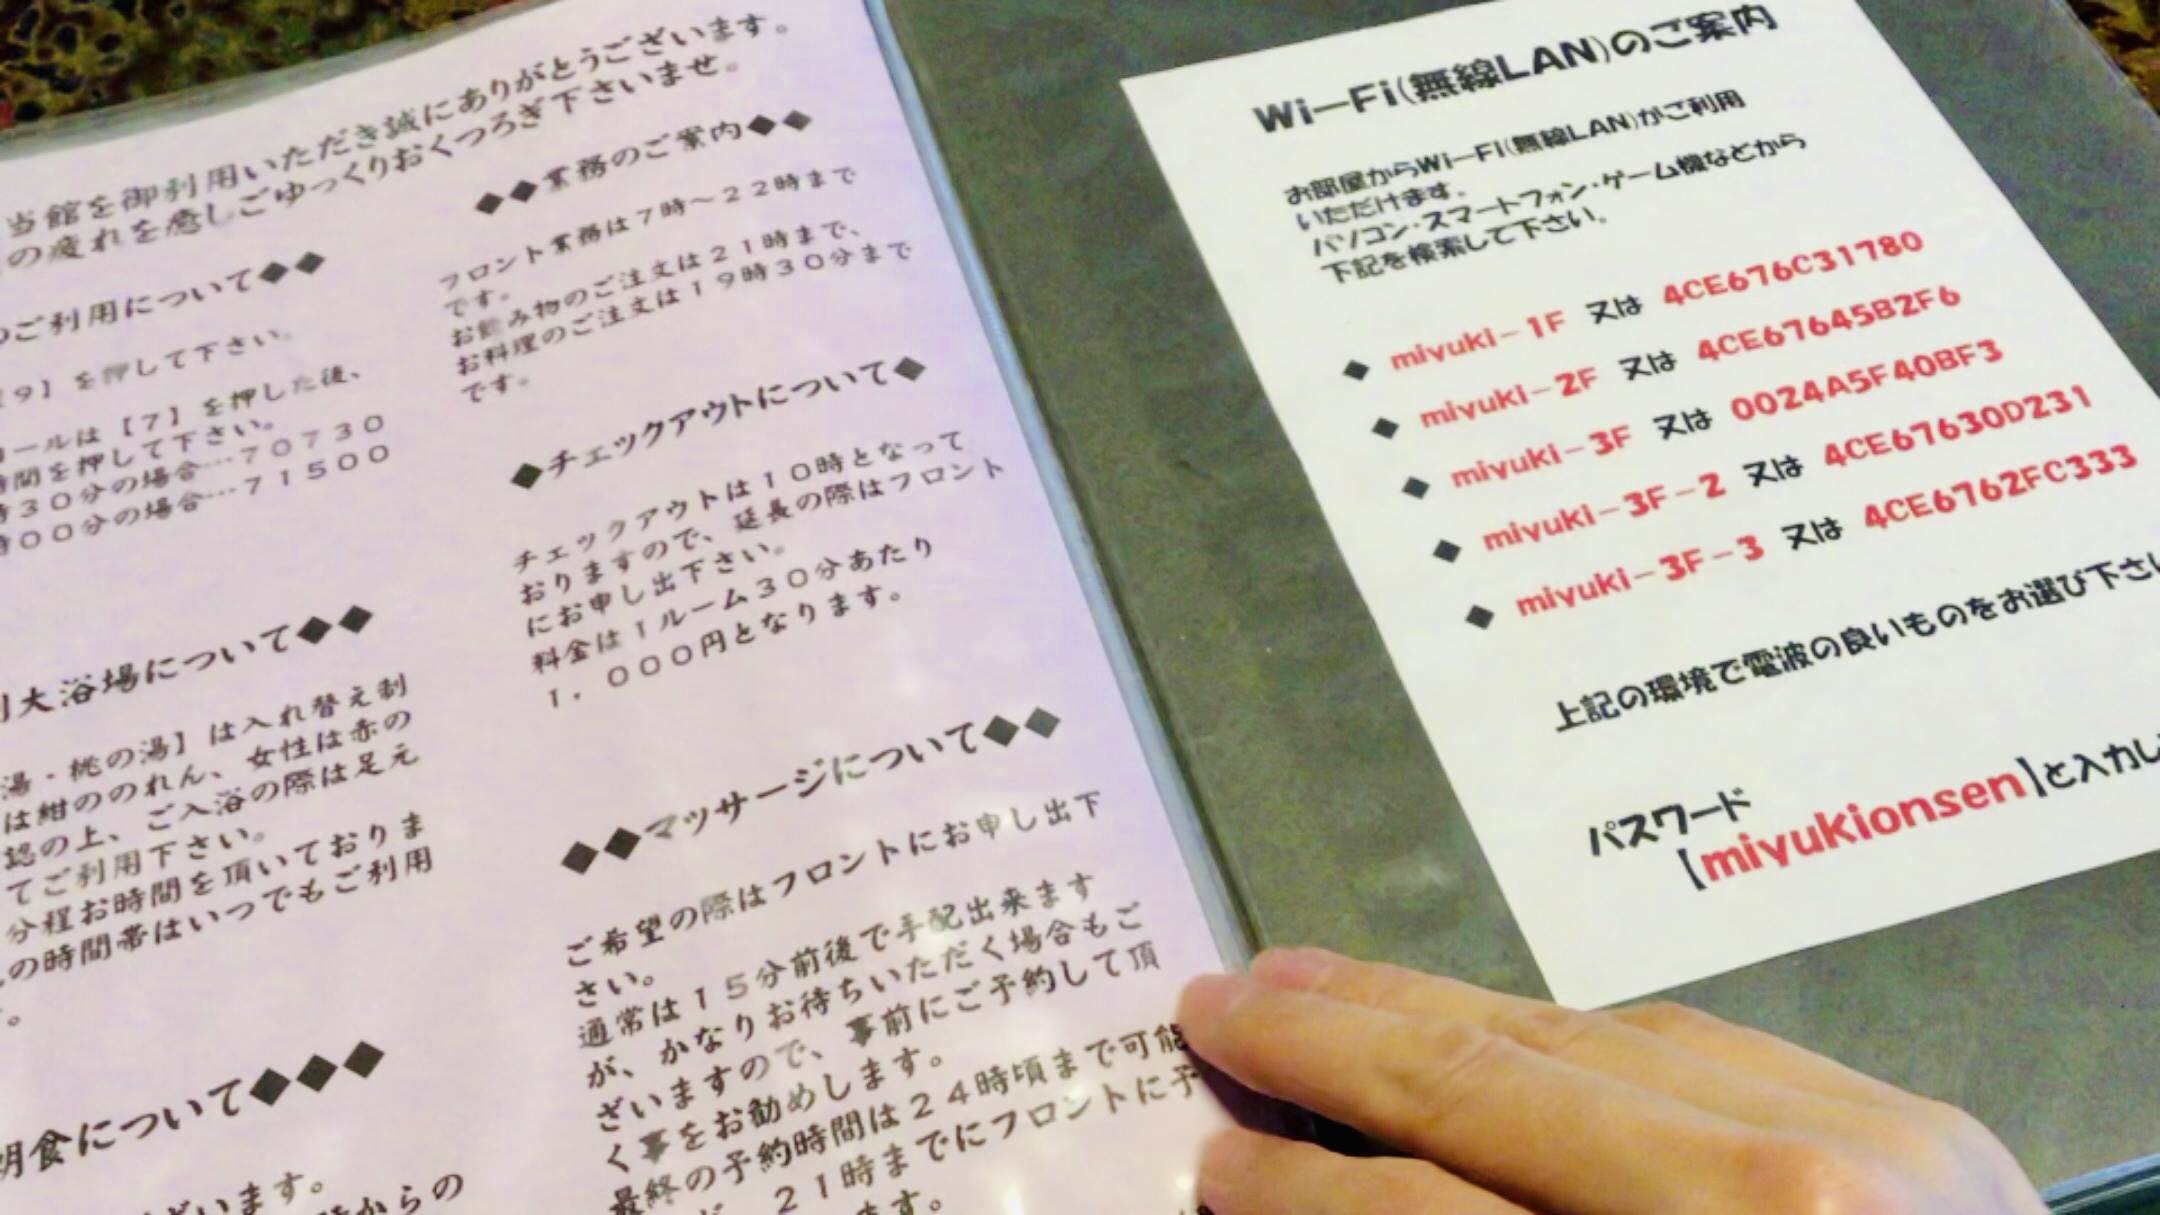 当館を御利用いただき誠にありがとうございます。
の疲れを癒しごゆっくりおくつろぎ下さいませ。
ご利用について◆◆
9】を押して下さい。
ールは【7】を押した後、
時間を押して下さい。
時30分の場合…70730
時00分の場合…71500
大浴場について◆◆
湯・桃の湯】は入れ替え制
は紺ののれん、女性は赤の
認の上、ご入浴の際は足元
てご利用下さい。
分程お時間を頂いておりま
の時間帯はいつでもご利用
。
朝食について◆◆◆
ざいます。
時からの
◆◆業務のご案内◆◆
フロント業務は7時〜22時まで
です。
お飲み物のご注文は21時まで、
お料理のご注文は19時30分まで
です。
◆チェックアウトについて◆
チェックアウトは10時となって
おりますので、延長の際はフロント
にお申し出下さい。
料金は1ルーム30分あたり
1,000円となります。
◆◆マッサージについて◆◆
ご希望の際はフロントにお申し出下
さい。
通常は15分前後で手配出来ます
が、かなりお待ちいただく場合もご
ざいますので、事前にご予約して頂
く事をお勧めします。
最終の予約時間は24時頃まで可能
21時までにフロントに予
ます。
Wi-Fi(無線LAN)のご案内
お部屋からWi-Fi(無線LAN)がご利用
いただけます。
パソコン・スマートフォン・ゲーム機などから
下記を検索して下さい。
◆ miyuki-1F 又は 4CE676C31780
◆ miyuki-2F 又は 4CE67645B2F6
◆ miyuki-3F 又は 0024A5F40BF3
◆ miyuki-3F-2 又は 4CE67630D231
◆ miyuki-3F-3 又は 4CE6762FC333
上記の環境で電波の良いものをお選び下さい
パスワード
【miyukionsen】と入力し